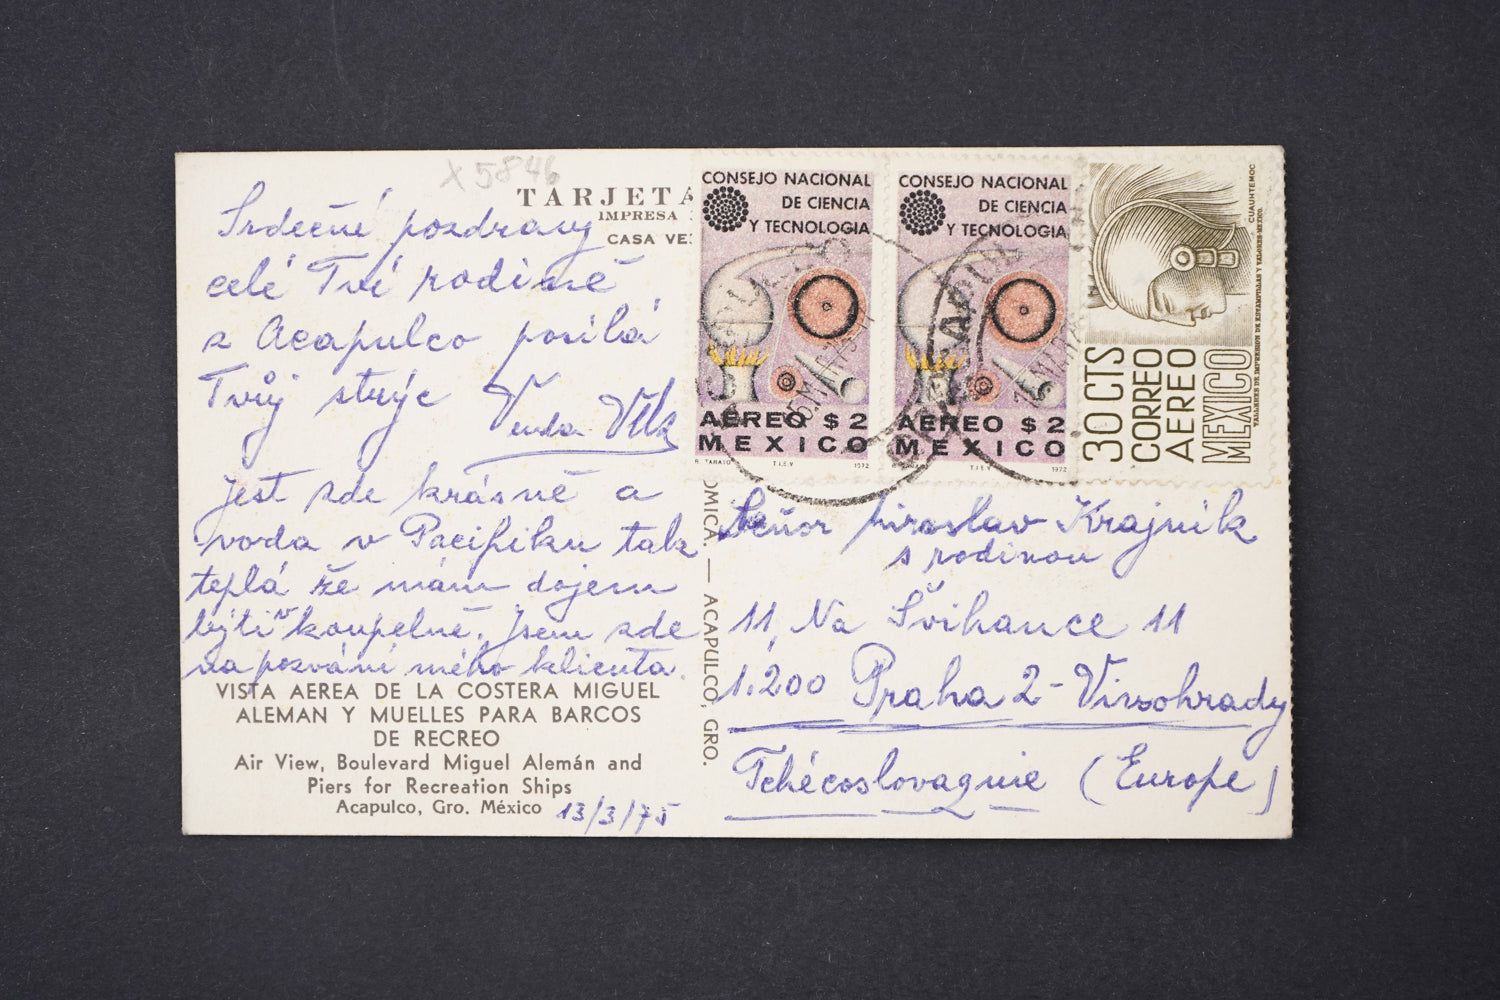 x 5846
TARJETA
IMPRESA
CASA VE
Srdečné pozdravy
celé Tvé rodině
z Acapulco posílá
Tvůj strýc
Jest zde krásně a
voda v Pacifiku tak
teplá že mám dojem
býti v koupelně. Jsem zde
na pozvání mého klienta.
VISTA AEREA DE LA COSTERA MIGUEL
ALEMAN Y MUELLES PARA BARCOS
DE RECREO
Air View, Boulevard Miguel Alemán and
Piers for Recreation Ships
Acapulco, Gro. México
13/3/75
OMICA. — ACAPULCO, GRO.
CONSEJO NACIONAL
DE CIENCIA
Y TECNOLOGIA
AEREO $2
MEXICO
R. TAMAYO T.I.E.V 1972
CONSEJO NACIONAL
DE CIENCIA
Y TECNOLOGIA
AEREO $2
MEXICO
T.I.E.V 1972
CUAUHTEMOC
TALLERES DE IMPRESION DE ESTAMPILLAS Y VALORES-MEXICO.
30 CTS
CORREO
AEREO
MEXICO
Señor Miroslav Krajník
s rodinou
11, Na Švihance 11
1.200 Praha 2 - Vinohrady
Tchécoslovaquie (Europe)